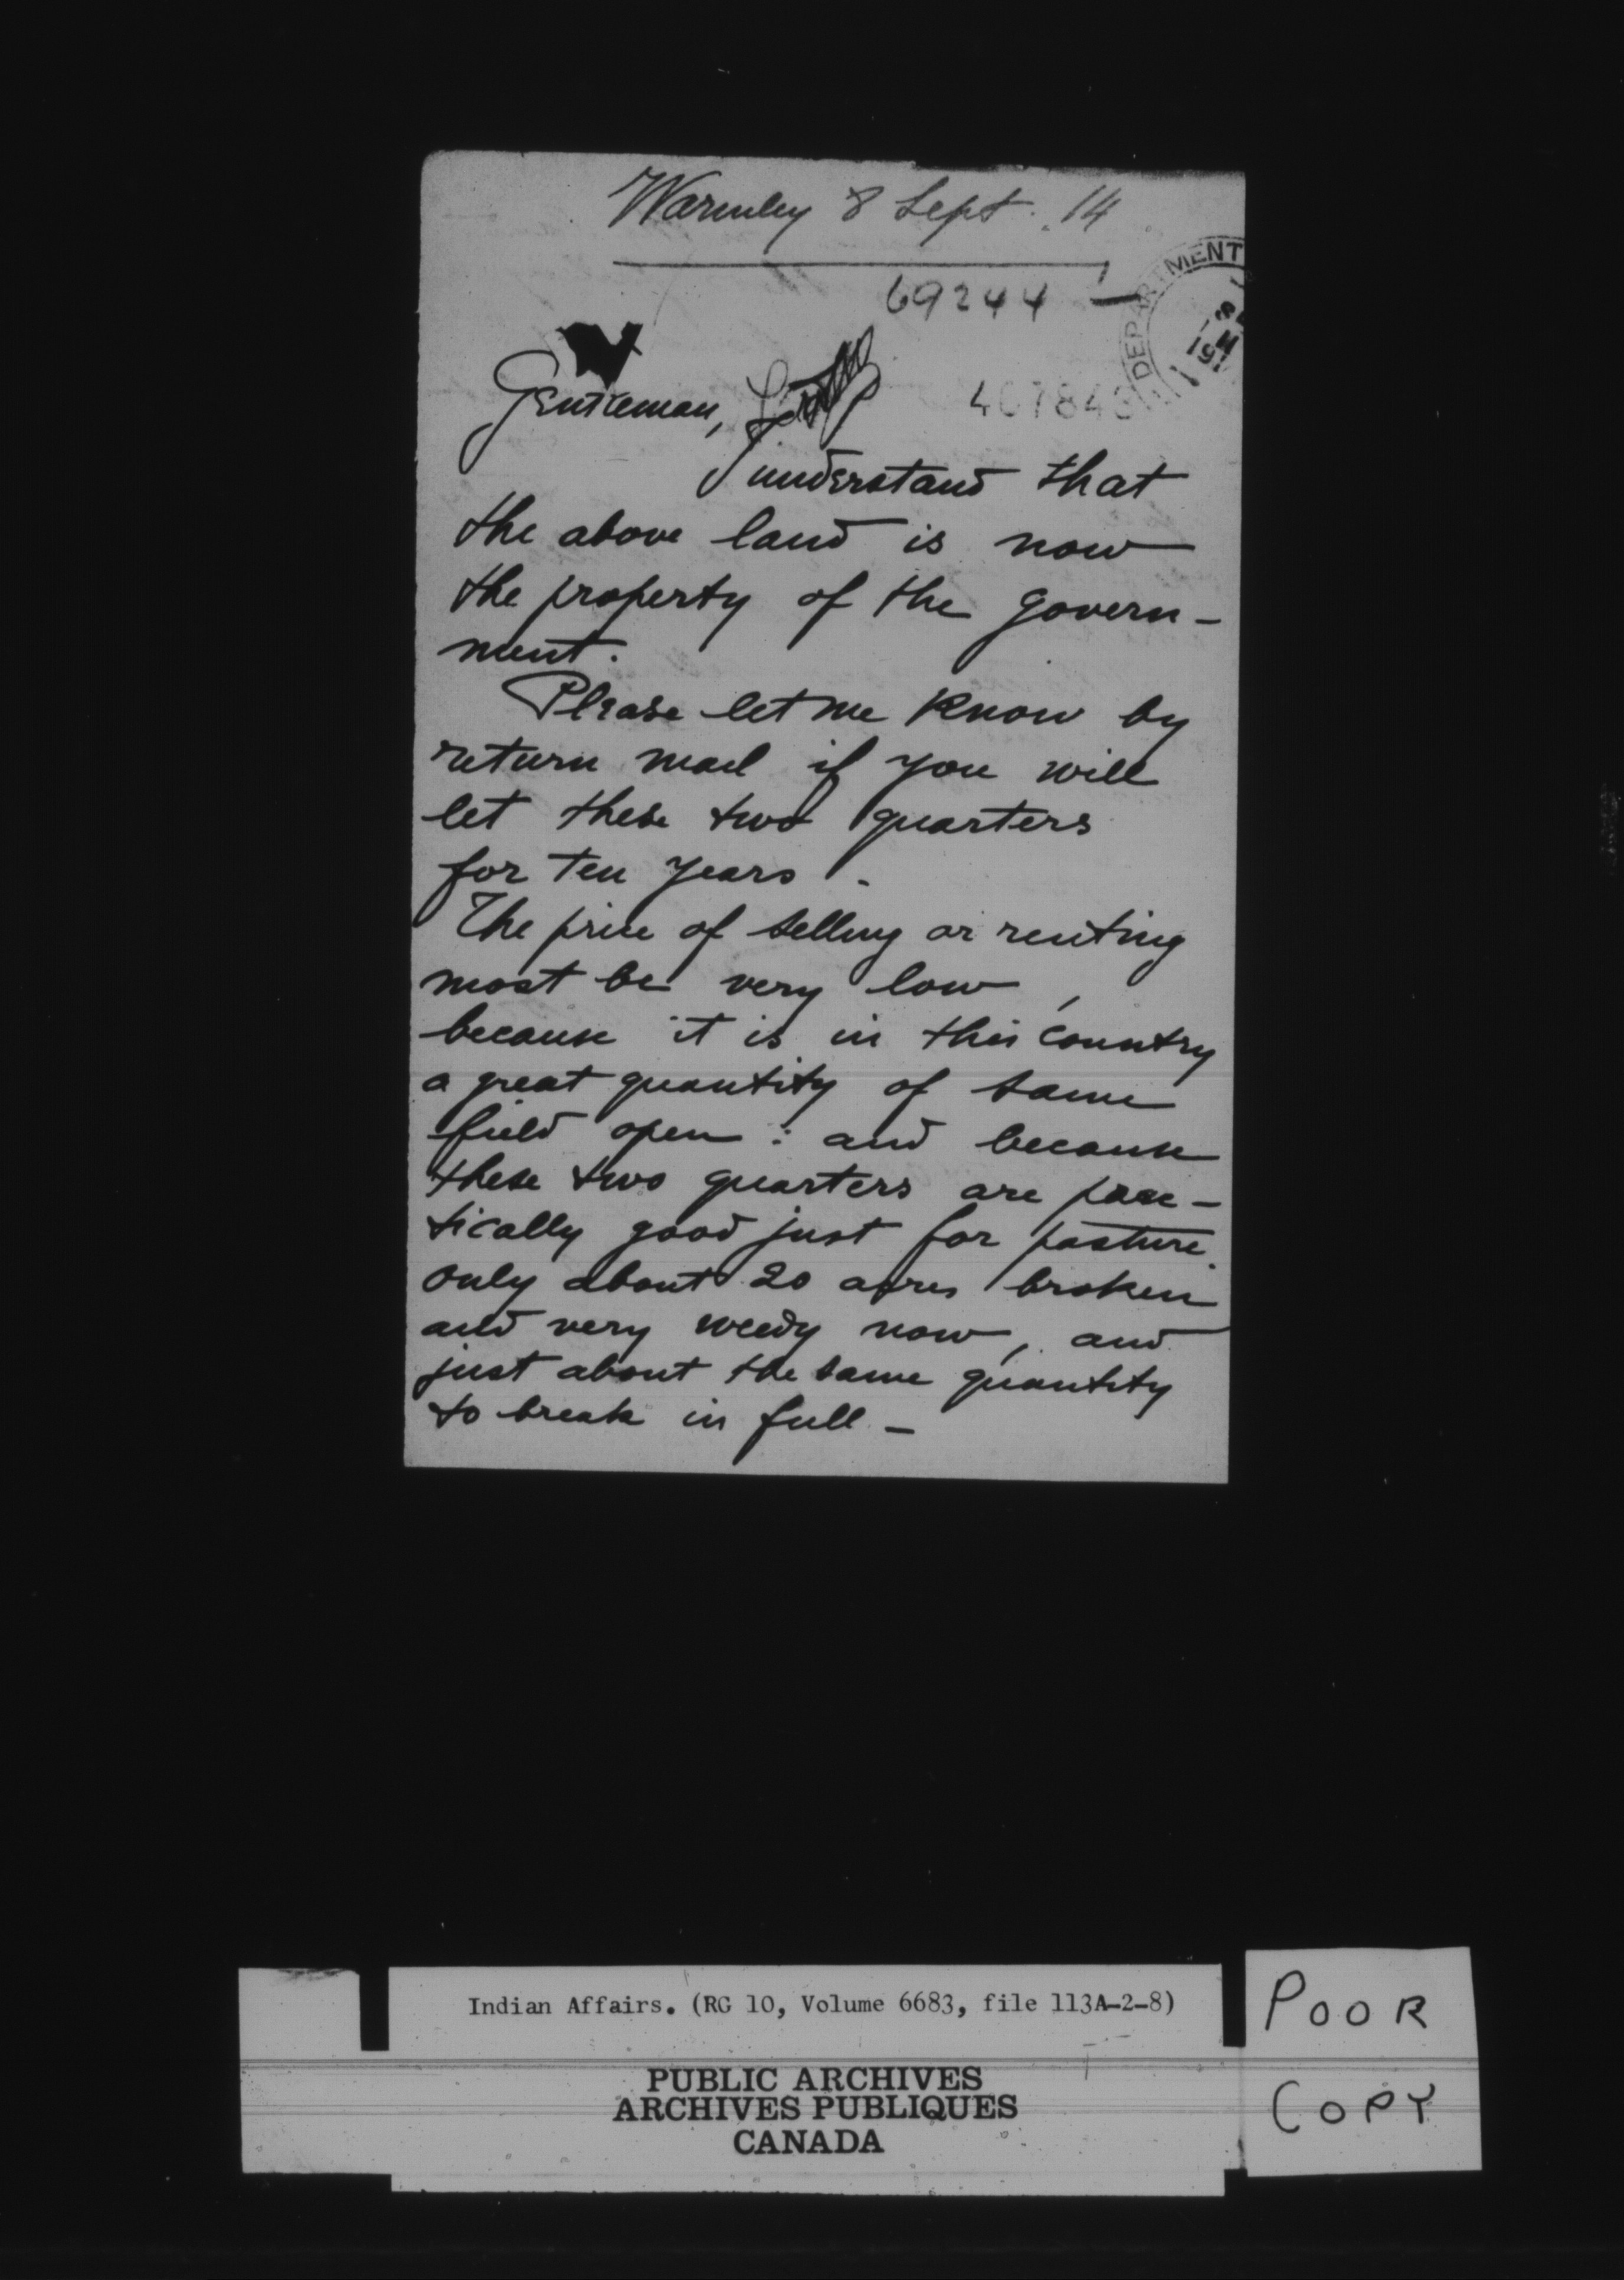 Warmley 8 Sept. 14
69244 —
DEPARTMENT
407843
Gentleman,
I understand that
the above land is now
the property of the govern-
ment.
Please let me know by
return mail if you will
let these two quarters
for ten years.
The price of selling or renting
most be very low,
because it is in this country
a great quantity of same
field open : and because
these two quarters are prac-
tically good just for pasture
only about 20 acres broken
and very weedy now, and
just about the same quantity
to break in full –
Indian Affairs. (RG 10, Volume 6683, file 113A-2-8)
PUBLIC ARCHIVES
ARCHIVES PUBLIQUES
CANADA
POOR
COPY